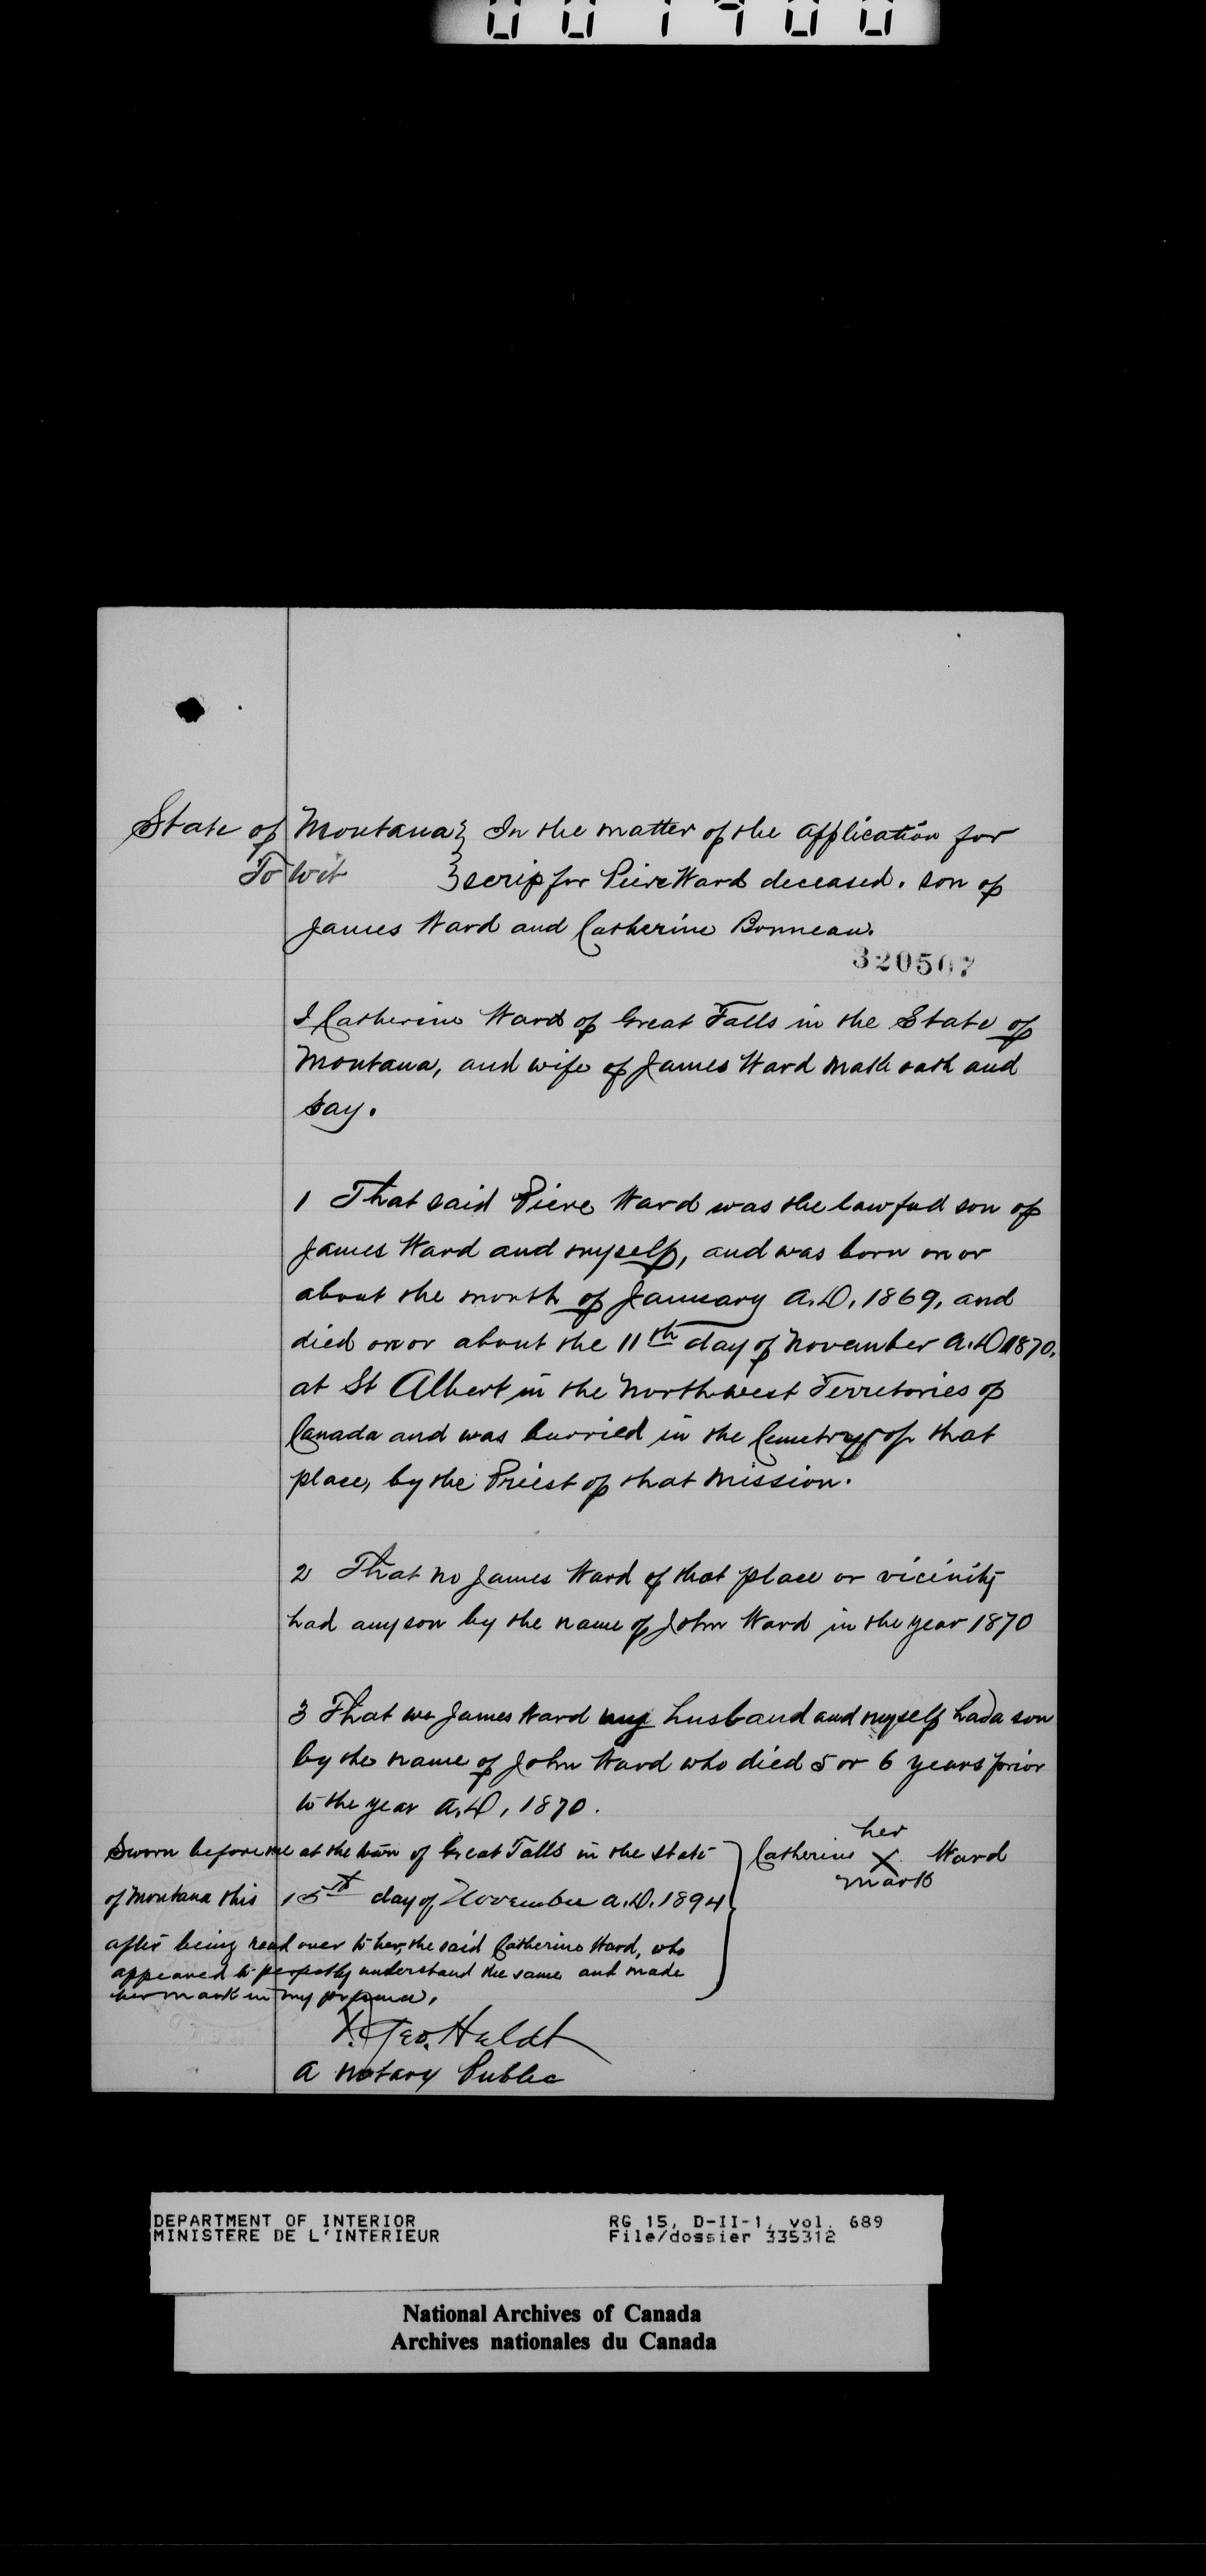 State of Montana } In the matter of the application for
To wit } scrip for Piere Ward deceased. son of
James Ward and Catherine Bonneau.
320507
I Catherine Ward of Great Falls in the State of
Montana, and wife of James Ward math oath and
say.
1 That said Piere Ward was the lawful son of
James Ward and myself, and was born on or
about the month of January A.D. 1869, and
died on or about the 11th day of November A.D 1870,
at St Albert in the Northwest Territories of
Canada and was burried in the Cemetry of that
place, by the Priest of that Mission.
2 That no James Ward of that place or vicinity
had any son by the name of John Ward in the year 1870
3 That we James Ward my husband and myself had a son
by the name of John Ward who died 5 or 6 years prior
to the year A.D, 1870.
Sworn before me at the town of Great Falls in the State
of Montana this 15th day of November A.D. 1894
after being read over to her, the said Catherine Ward, who
appeared to perfectly understand the same and made
her mark in my presence.
her
Catherine X Ward
mark
Geo. Heldt
A Notary Public
DEPARTMENT OF INTERIOR RG 15, D-II-1, vol. 689
MINISTERE DE L'INTERIEUR File/dossier 335312
National Archives of Canada
Archives nationales du Canada